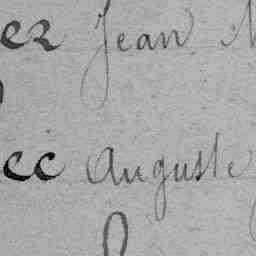 ez Jean
ec Auguste